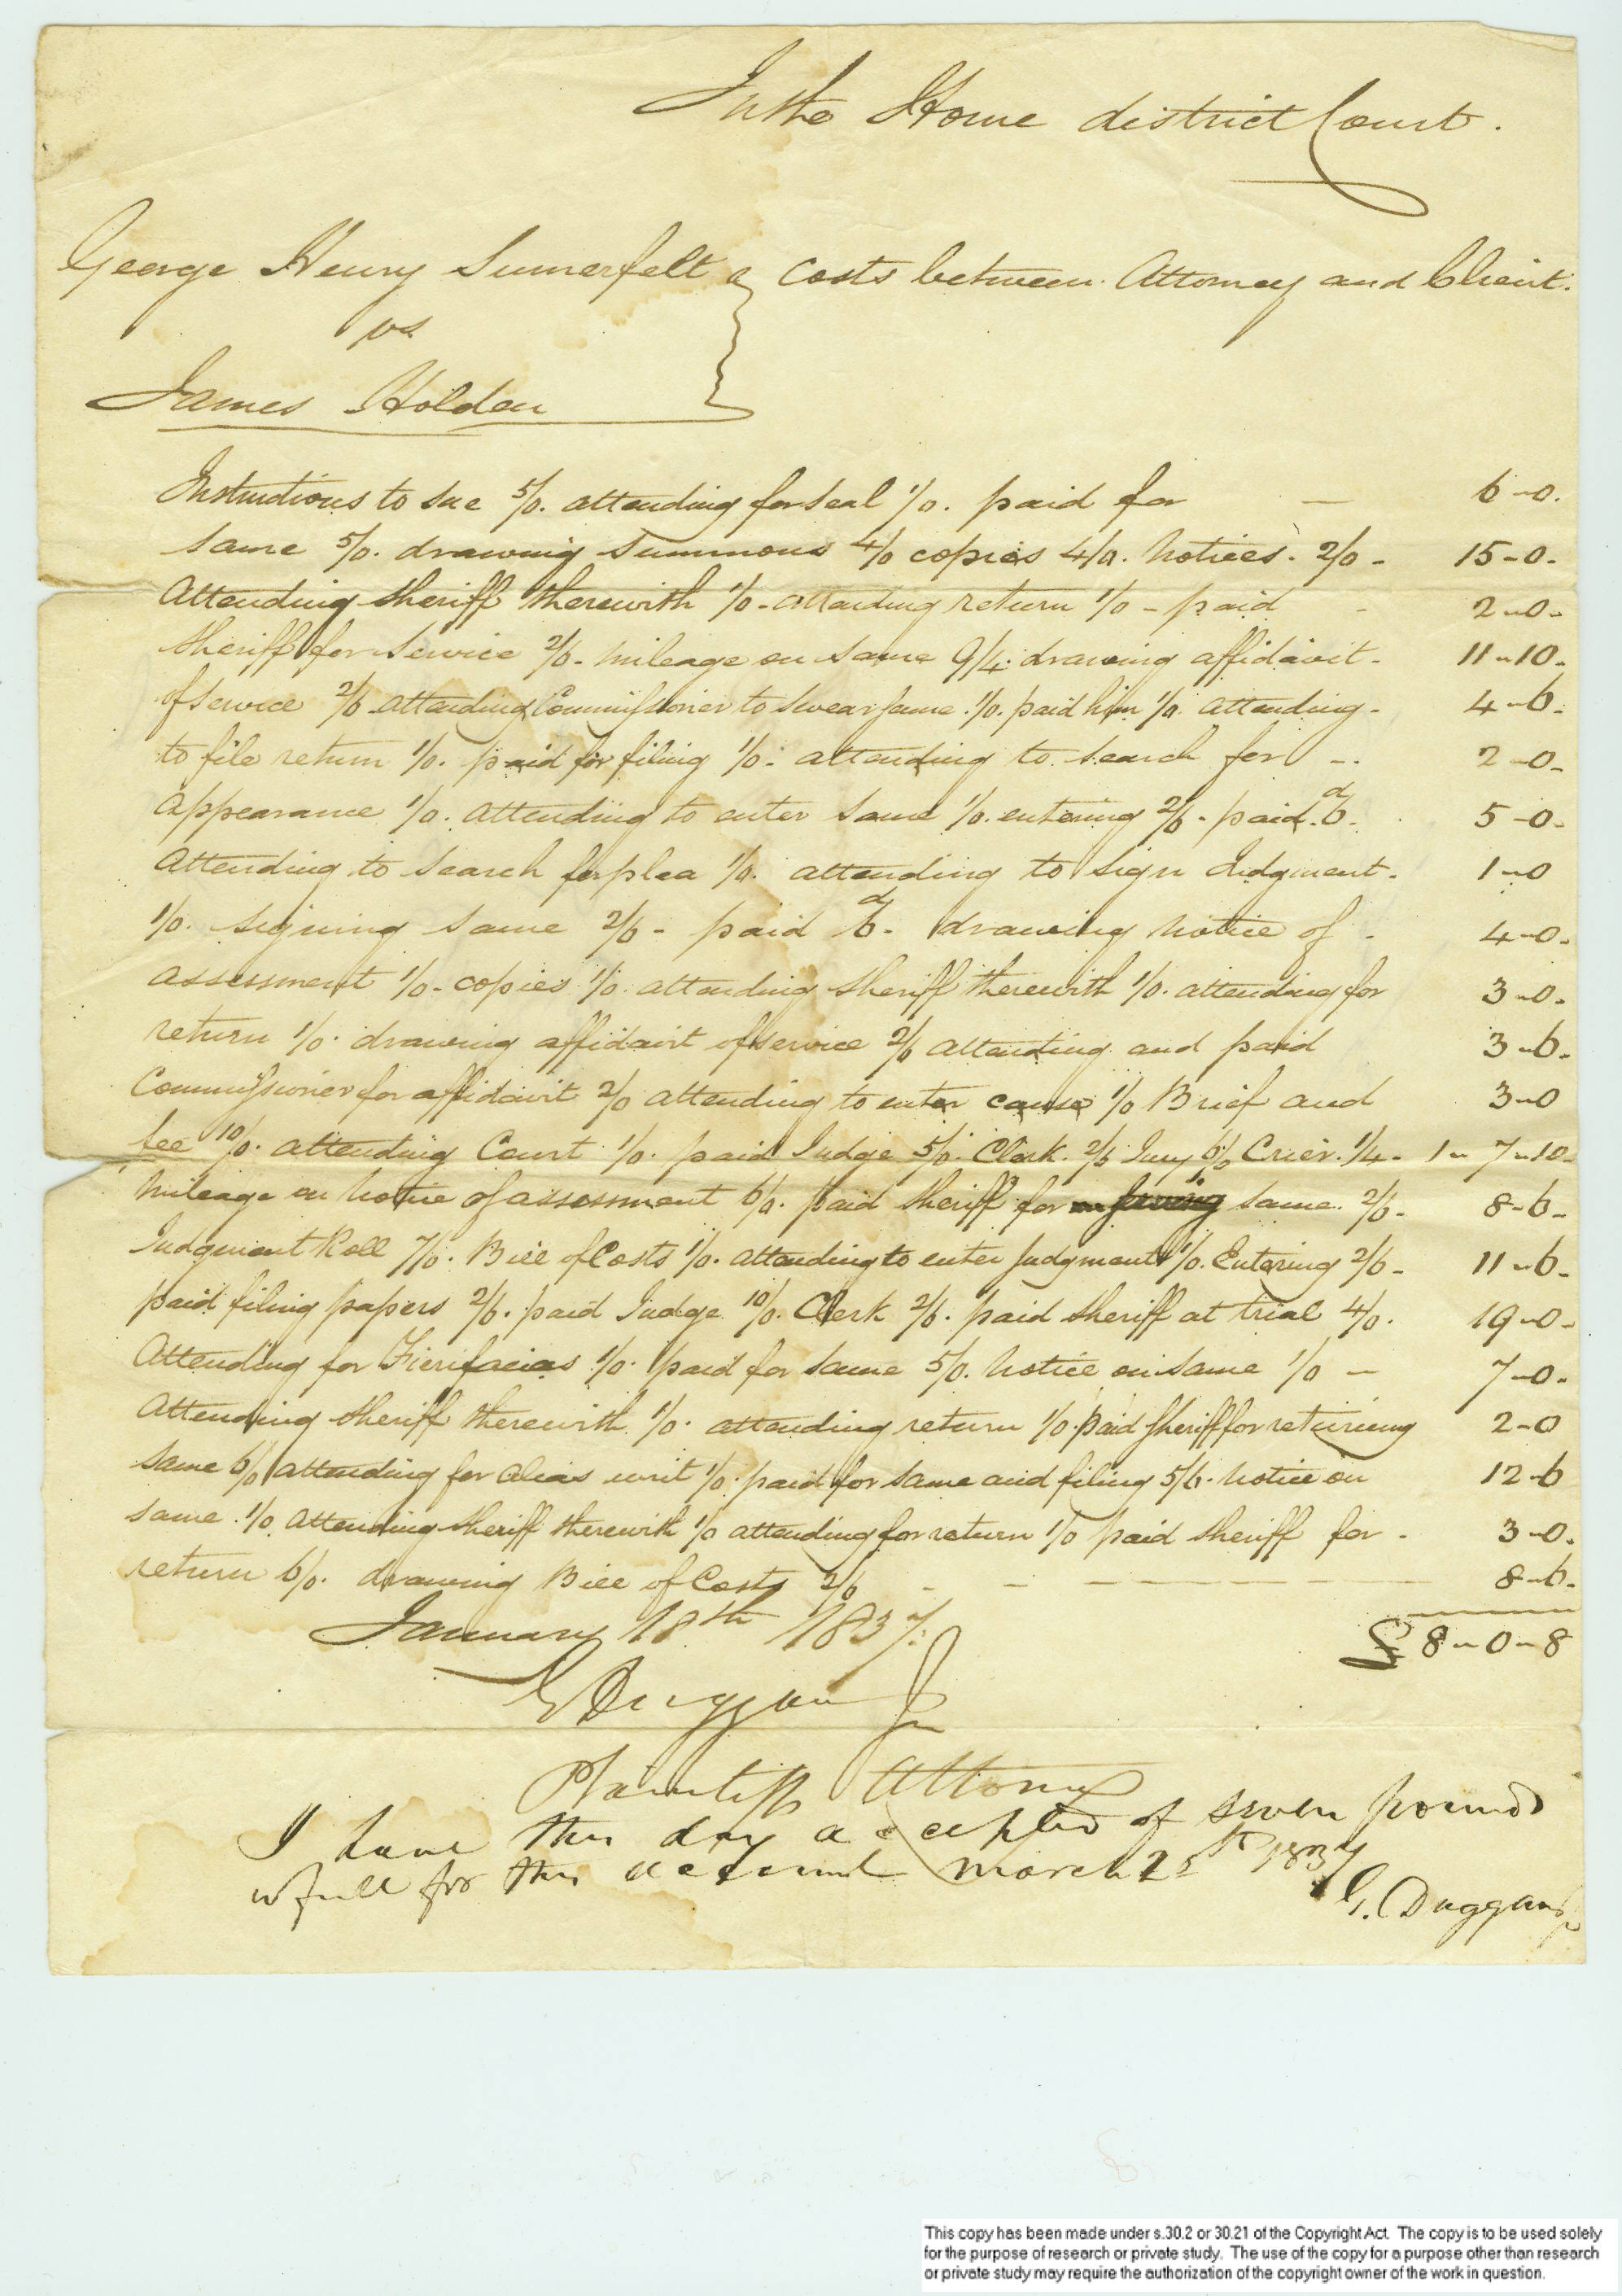 In the Home district Court.
George Henry Sumerfelt } Costs between Attorney and Client.
vs
James Holden
Instructions to sue 5/0. attending for seal 1/0. paid for — 6-0.
same 5/0. drawing Summons 4/0 copies 4/0. Notices. 2/0 - 15-0-
Attending Sheriff therewith 1/0 - attending return 1/0 - paid - 2-0-
Sheriff for Service 2/6 - mileage on same 9/4. drawing affidavit - 11-10-
of service 2/6 attending Commissioner to swear same 1/0. paid him 1/0. attending - 4-6-
to file return 1/0. paid for filing 1/0 - attending to search for - 2-0-
appearance 1/0. attending to enter same 1/0. entering 2/6 - paid 6d. 5-0-
Attending to search for plea 1/0. attending to sign Judgment. 1-0
1/0. signing same 2/6 - paid 6d - drawing notice of - 4-0-
assessment 1/0 - copies 1/0. attending Sheriff therewith 1/0. attending for 3-0-
return 1/0. drawing affidavit of service 2/6 attending and paid 3-6-
Commissioner for affidavit 2/0 attending to enter cause 1/0 Brief and 3-0
fee 10/0. attending Court 1/0. paid Judge 5/0. Clerk. 2/6 Jury 6/0 Crier. 1/4 - 1-7-10-
Mileage on Notice of assessment 6/0. paid Sheriff for same. 2/6 - 8-6-
Judgment Roll 7/0. Bill of Costs 1/0. attending to enter Judgment 1/0. Entering 2/6 - 11-6-
paid filing papers 2/6. paid Judge 10/0. Clerk 2/6. paid Sheriff at trial 4/0. 19-0-
Attending for Fierifacias 1/0. paid for same 5/0. Notice on same 1/0 - 7-0-
Attending Sheriff therewith 1/0. attending return 1/0. paid Sheriff for returning 2-0
same 6/0 attending for alias writ 1/0. paid for same and filing 5/6. Notice on 12-6
same. 1/0. attending Sheriff therewith 1/0 attending for return 1/0 paid Sheriff for - 3-0-
return 6/0. drawing Bill of Costs 2/6 - - - 8-6-
January 18th 1837. £8-0-8
G Duggan Jr
Plaintiffs Attorney
I have this day accepted of seven pounds
in full for this account March 25th 1837
G. Duggan Jr
This copy has been made under s.30.2 or 30.21 of the Copyright Act. The copy is to be used solely
for the purpose of research or private study. The use of the copy for a purpose other than research
or private study may require the authorization of the copyright owner of the work in question.